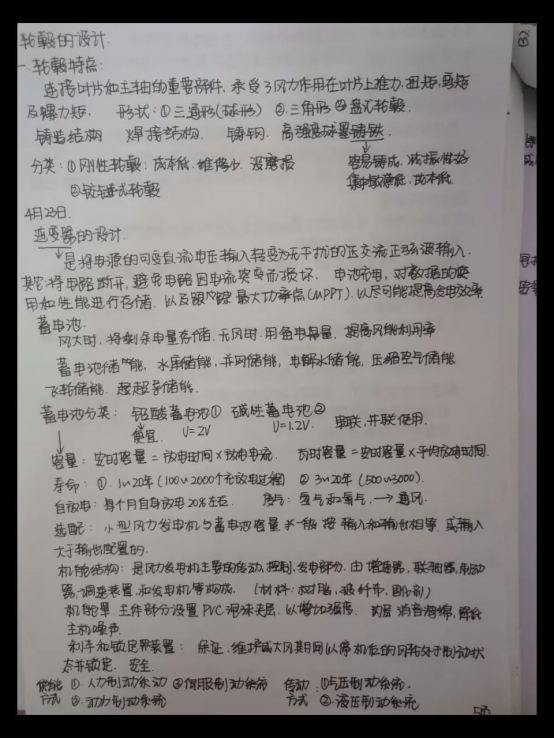 轮毂的设计.
一.轮毂特点:
连接叶片和主轴的重要部件,承受了风力作用在叶片上推力,扭矩,弯矩
及 力矩. 形状:①三通形(球形) ②.三角形 ③ 式轮毂.
铸造结构 焊接结构. 铸钢. 高强度球墨铸铁.
分类:①刚性轮毂:成本低.维修少.没磨损 容易铸成,减振性好
②铰链式轮毂 成本低
4月23日.
逆变器的设计.
是将电源的可变直流电压输入转变为无干扰的 交流正弦波输入.
其它将电路断开,避免电路因电流突变而损坏. 电池充电,对数据的使
用和性能进行存储.以及跟踪最大功率点(MPPT).以尽可能提高发电效率
蓄电池.
风大时.将剩余电量存储.无风时.用备电 量.提高风能利用率
蓄电池储能,水库储能,并网储能,电解水储能,压缩空气储能
飞轮储能. 超导储能.
蓄电池分类: 铅酸蓄电池① 碱性蓄电池②
便宜. U=2V U=1.2V. 串联,并联使用.
容量:安时容量=放电时间×放电电流. 瓦时容量=安时容量×平均放电时间.
寿命:①.1~20年(100~2000个充放电过程) ②3~20年(500~3000).
自放电:每个月自身放电20%左右. 废气:氢气和氧气.→通风.
选配:小型风力发电机与蓄电池容量 一般按输入和输出相等.或输入
大于输出配置的.
机舱结构:是风力发电机主要的传动,控制,发电部分.由增速器,联轴器,制动
器,调速装置,和发电机等构成.(材料:树脂,玻纤布,固化剂)
机舱罩 主体部分设置PVC泡沫夹层.以增加强度. 消音海绵,降低
主机噪声.
刹车和锁定 装置:保证.维护或大风期间以停机后的风轮处于制动状
态并锁定.安全.
供能 ①.人力制动系动 ②伺服制动系统 传动:①气压制动系统.
方式 ③.动力制动系统 方式 ②液压制动系统